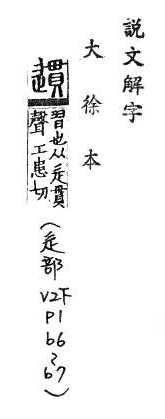 說文解字
大徐本
遺
習也从辵貫
聲工患切
(辵部
V2下
P1
b6
2
b7)